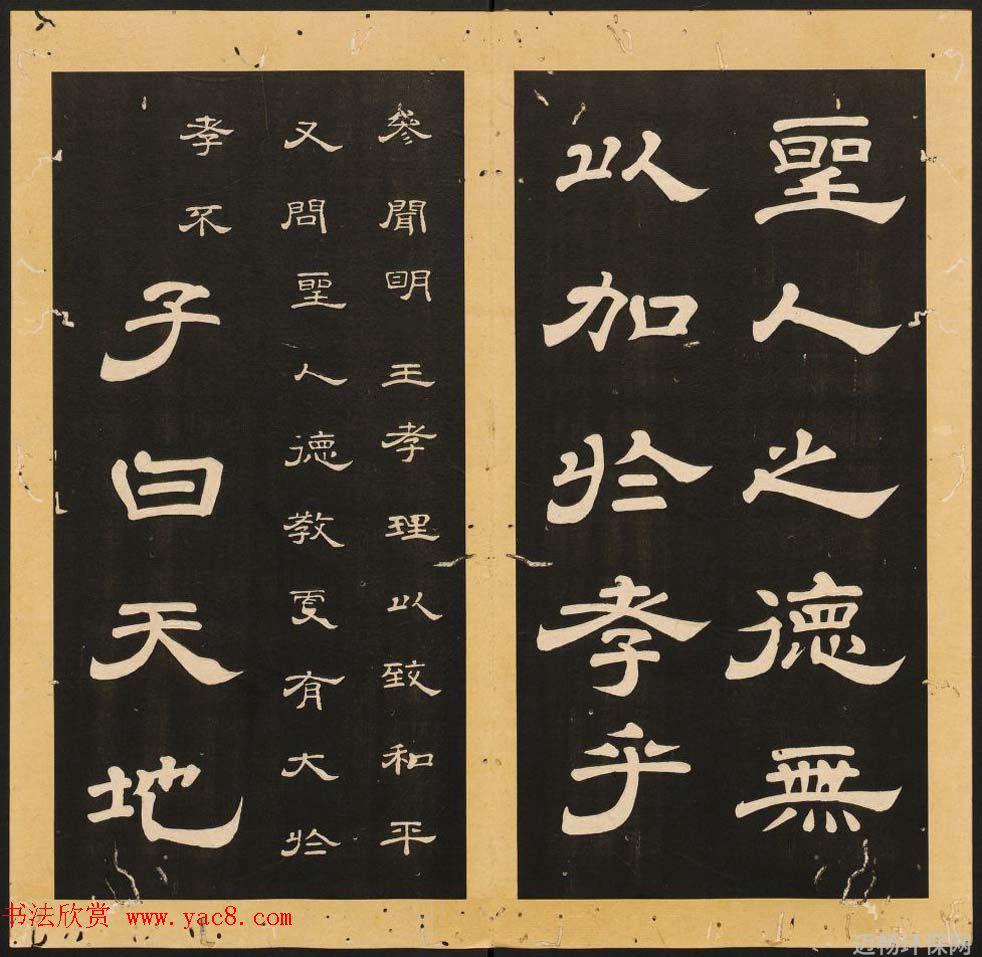 聖人之德無
以加於孝乎
參聞明王孝理以致和平
又問聖人德教更有大於
孝不
子曰天地
书法欣赏 www.yac8.com
迈畅环保网